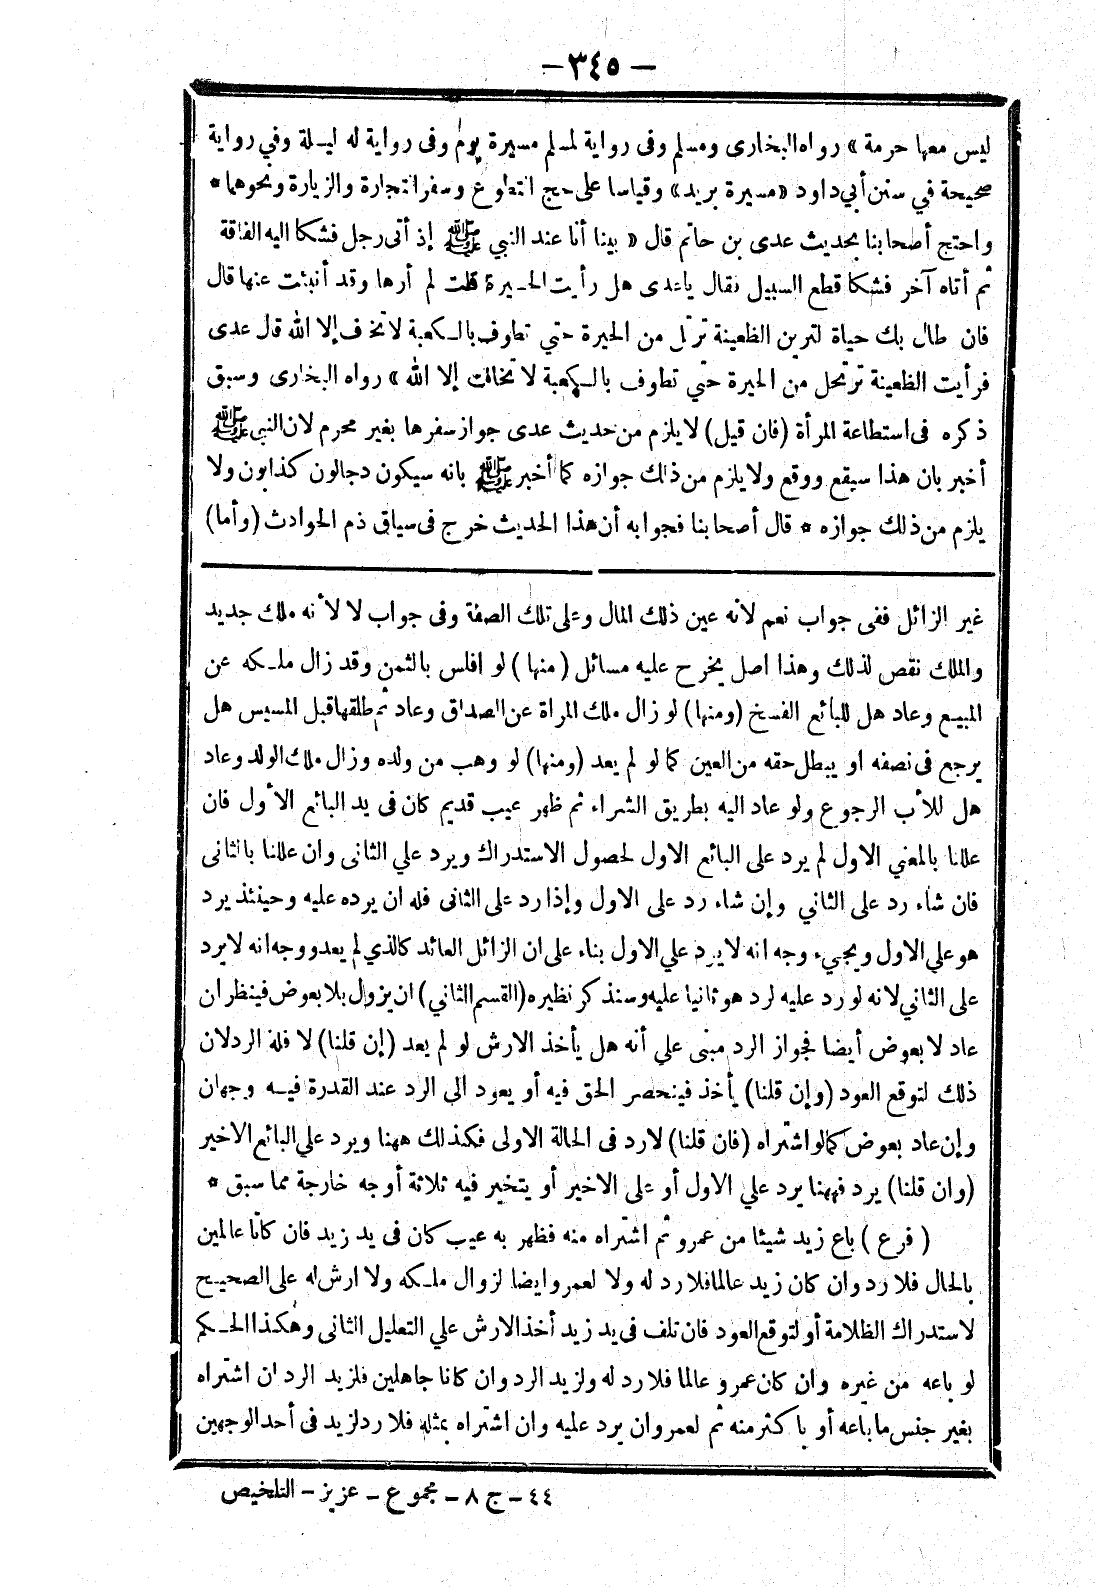 — ٣٤٥ —
ليس معها حرمة » رواه البخارى ومسلم وفى رواية لمسلم مسيرة يوم وفى رواية له ليلة وفي رواية
صحيحة في سنن أبي داود «مسيرة بريد» وقياسا على حج التطوع وسفر التجارة والزيارة ونحوهما *
واحتج أصحابنا بحديث عدى بن حاتم قال « بينا أنا عند النبي ﷺ إذ أتى رجل فشكا اليه الفاقة
ثم أتاه آخر فشكا قطع السبيل فقال ياعدى هل رأيت الحيرة قلت لم أرها وقد أنبئت عنها قال
فان طال بك حياة لترين الظعينة ترتحل من الحيرة حتي تطوف بالكعبة لا تخاف إلا الله قال عدى
فرأيت الظعينة ترتحل من الحيرة حتي تطوف بالكعبة لا تخاف إلا الله » رواه البخارى وسبق
ذكره فى استطاعة المرأة (فان قيل) لا يلزم من حديث عدى جواز سفرها بغير محرم لان النبي ﷺ
أخبر بان هذا سيقع ووقع ولا يلزم من ذلك جوازه كما أخبر ﷺ بانه سيكون دجالون كذابون ولا
يلزم من ذلك جوازه * قال أصحابنا فجوابه أن هذا الحديث خرج فى سياق ذم الحوادث (وأما)
غير الزائل ففى جواب نعم لانه عين ذلك المال وعلى تلك الصفة وفى جواب لا لأنه ملك جديد
والملك نقص لذلك وهذا اصل يخرج عليه مسائل (منها) لو افلس بالثمن وقد زال ملكه عن
المبيع وعاد هل للبائع الفسخ (ومنها) لو زال ملك المراة عن الصداق وعاد ثم طلقها قبل المسيس هل
يرجع فى نصفه او يبطل حقه من العين كما لو لم يعد (ومنها) لو وهب من ولده وزال ملك الولد وعاد
هل للأب الرجوع ولو عاد اليه بطريق الشراء ثم ظهر عيب قديم كان فى يد البائع الأول فان
عللنا بالمعني الاول لم يرد على البائع الاول لحصول الاستدراك ويرد علي الثانى وان عللنا بالثانى
فان شاء رد على الثاني وإن شاء رد على الاول وإذا رد على الثانى فله ان يرده عليه وحينئذ يرد
هو علي الاول ويجيء وجه انه لا يرد علي الاول بناء على ان الزائل العائد كالذي لم يعد ووجه انه لا يرد
على الثاني لانه لو رد عليه لرد هو ثانيا عليه وسنذكر نظيره (القسم الثاني) ان يزول بلا بعوض فينظر ان
عاد لا بعوض أيضا فجواز الرد مبنى علي أنه هل يأخذ الارش لو لم يعد (إن قلنا) لا فله الرد لان
ذلك لتوقع العود (وإن قلنا) يأخذ فينحصر الحق فيه أو يعود الى الرد عند القدرة فيه وجهان
وإن عاد بعوض كما لو اشتراه (فان قلنا) لا رد فى الحالة الاولى فكذلك ههنا ويرد علي البائع الاخير
(وان قلنا) يرد فههنا يرد علي الاول أو على الاخير أو يتخير فيه ثلاثة أوجه خارجة مما سبق *
( فرع ) باع زيد شيئا من عمرو ثم اشتراه منه فظهر به عيب كان فى يد زيد فان كانا عالمين
بالحال فلا رد وان كان زيد عالما فلا رد له ولا لعمرو ايضا لزوال ملكه ولا ارش له على الصحيح
لاستدراك الظلامة أو لتوقع العود فان تلف فى يد زيد أخذ الارش علي التعليل الثانى وهكذا الحكم
لو باعه من غيره وان كان عمرو عالما فلا رد له ولزيد الرد وان كانا جاهلين فلزيد الرد ان اشتراه
بغير جنس ما باعه أو باكثر منه ثم لعمرو ان يرد عليه وان اشتراه بمثله فلا رد لزيد فى أحد الوجهين
٤٤ – ج ٨ – مجموع – عزيز – التلخيص